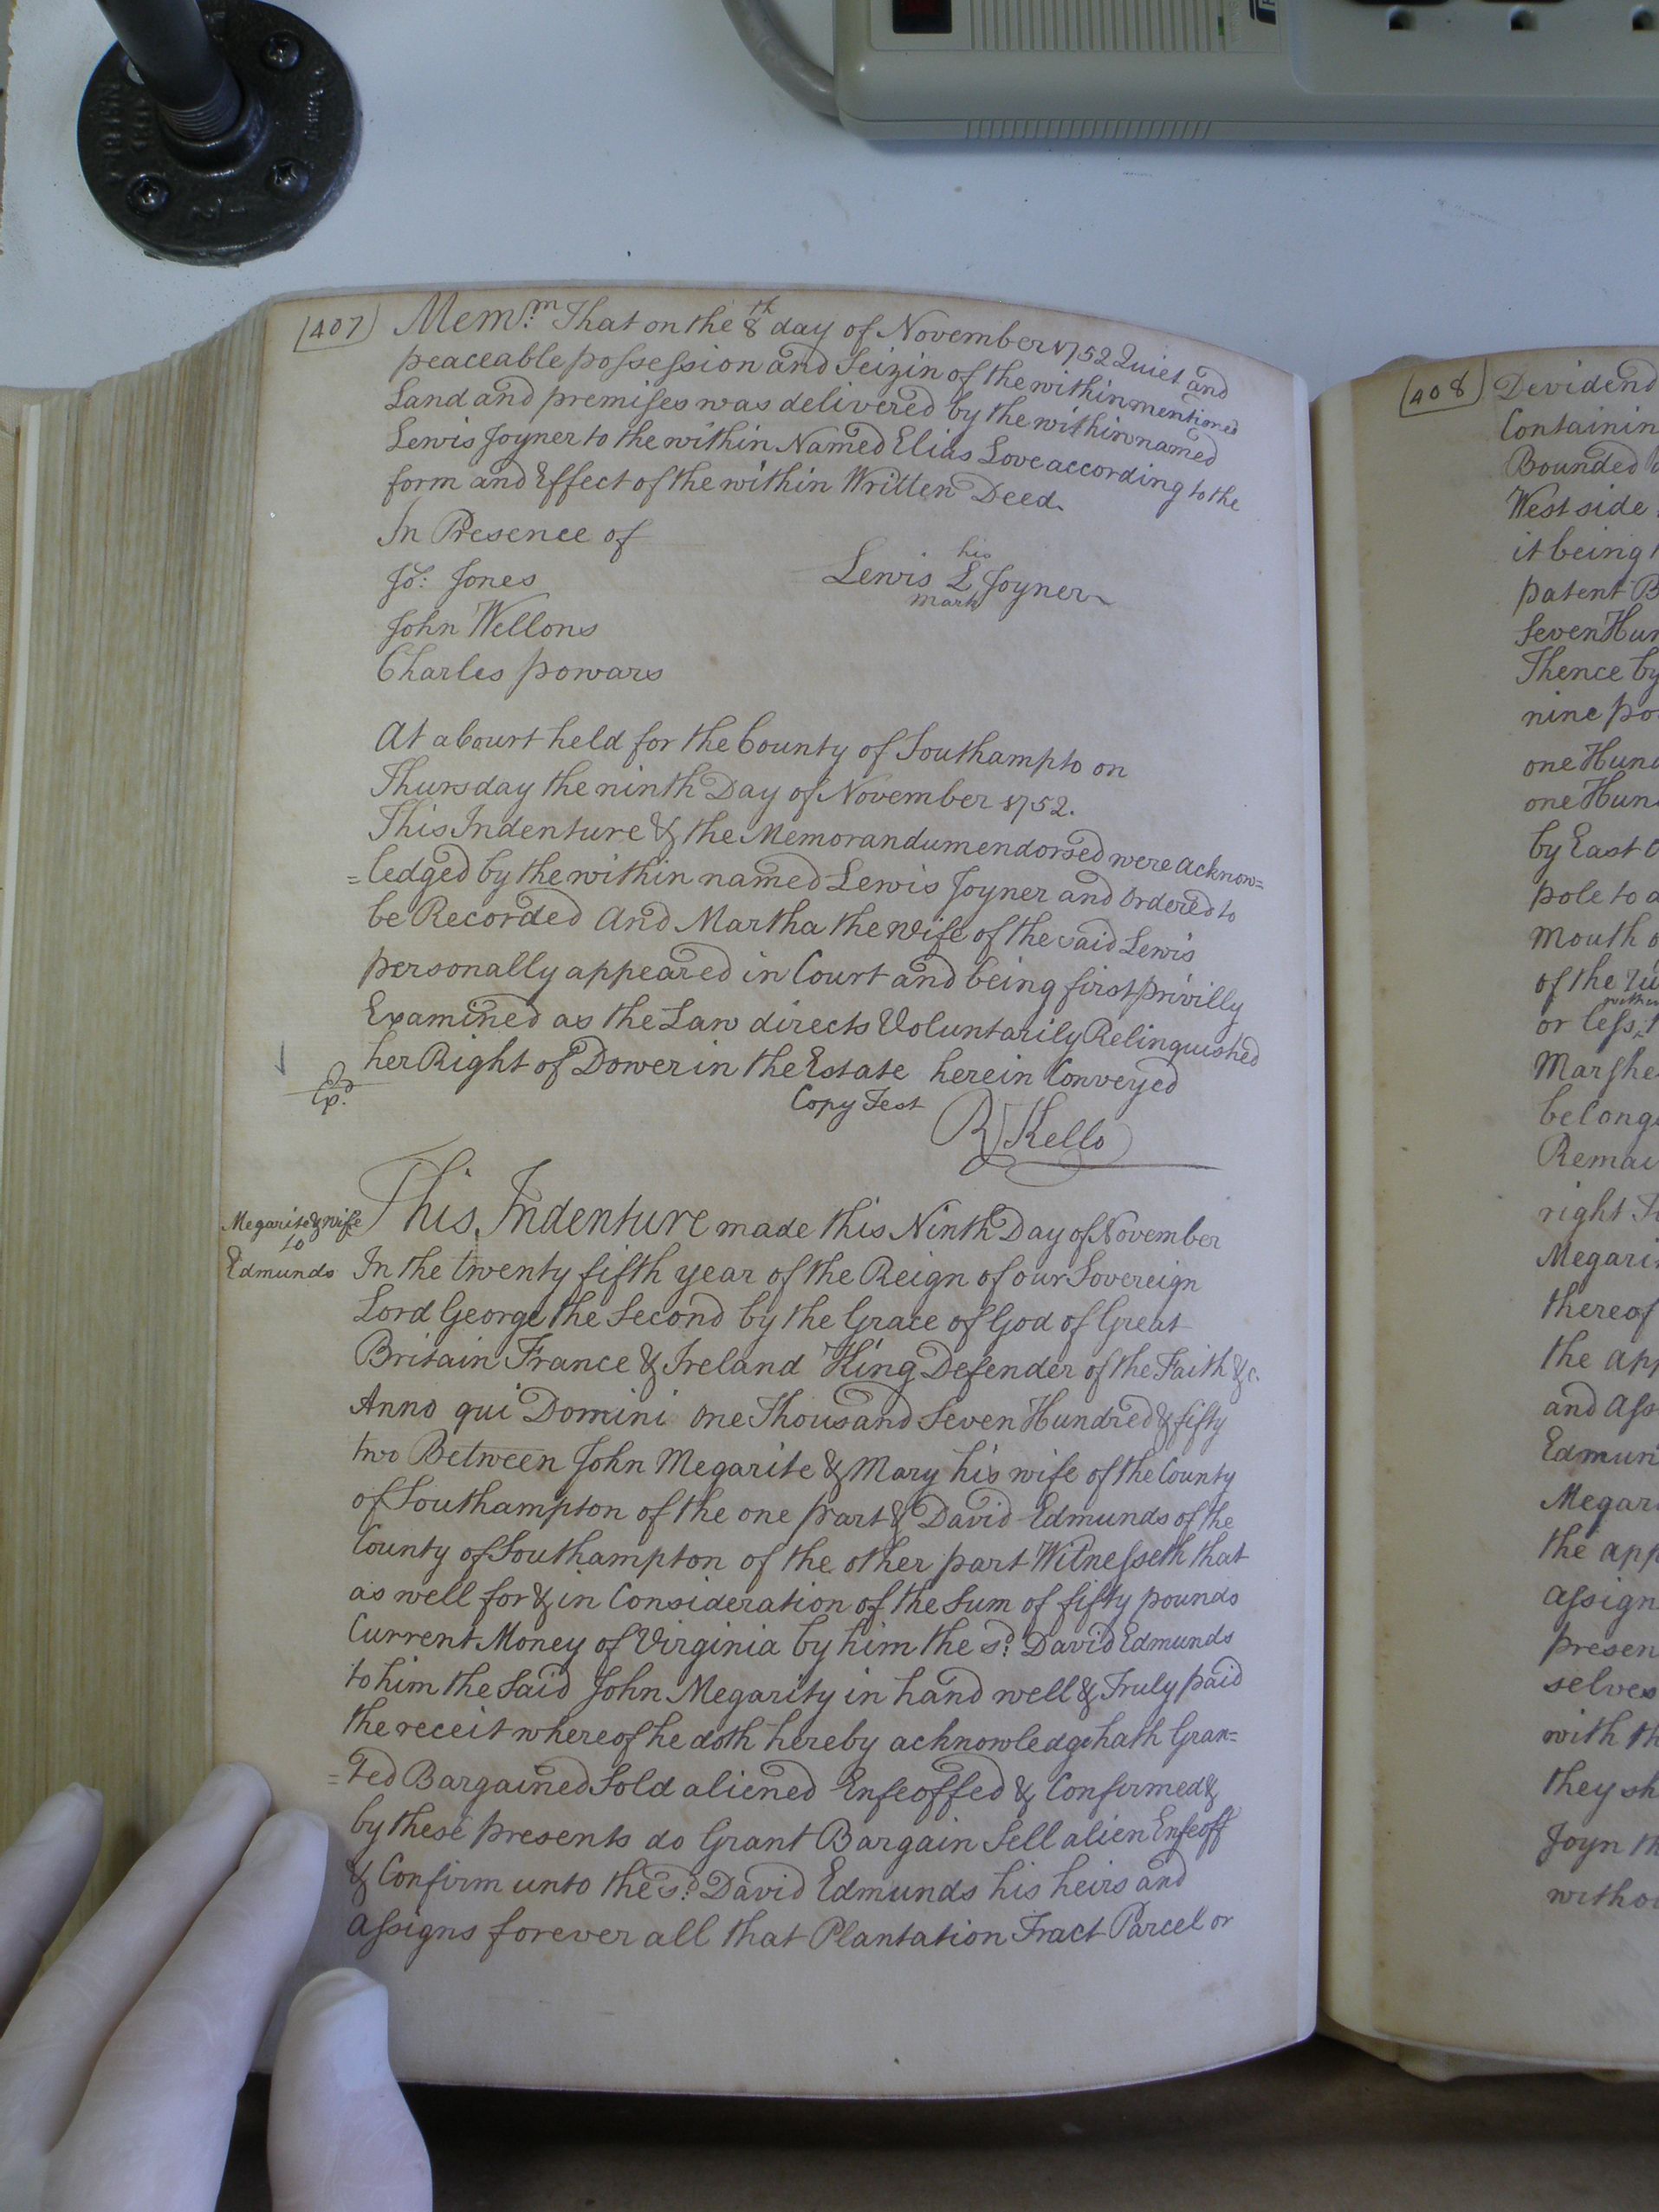 (407)
Mem:m That on the 8th day of November 1752 Quiet and
peaceable possession and Seizin of the within mentioned
Land and premises was delivered by the within named
Lewis Joyner to the within Named Elias Love according to the
form and Effect of the within Written Deed
In Presence of
Jo: Jones
his
Lewis L Joyner
mark
John Wellons
Charles powars
At a Court held for the County of Southampto on
Thursday the ninth Day of November 1752.
This Indenture & the Memorandum endorsed were Acknow=
=ledged by the within named Lewis Joyner and Ordered to
be Recorded And Martha the Wife of the said Lewis
personally appeared in Court and being first privilly
Examined as the Law directs Voluntarily Relinquished
her Right of Dower in the Estate herein Conveyed
Exd.
Copy Test
R Kello
Megarite & wife
to
Edmunds
This Indenture made this Ninth Day of November
In the twenty fifth year of the Reign of our Sovereign
Lord George the Second by the Grace of God of Great
Britain France & Ireland King Defender of the Faith &c.
Anno qui Domini One Thousand Seven Hundred & fifty
two Between John Megarite & Mary his wife of the County
of Southampton of the one part & David Edmunds of the
County of Southampton of the other part Witnesseth that
as well for & in Consideration of the Sum of fifty pounds
Current Money of Virginia by him the sd. David Edmunds
to him the Said John Megarity in hand well & Truly paid
the receit whereof he doth hereby acknowledge hath Gran=
=ted Bargained Sold aliened Enfeoffed & Confirmed &
by these presents do Grant Bargain Sell alien Enfeoff
& Confirm unto the sd. David Edmunds his heirs and
assigns forever all that Plantation Tract Parcel or
(408)
Devidend
Containin
Bounded
West side
it being
patent B
Seven Hun
Thence by
nine po
one Hund
one Hun
by East
pole to a
Mouth o
of the
or less
Marshe
belong
Remai
right
Megari
thereof
the app
and Ass
Edmun
Megari
the app
assign
presen
selves
with th
they sh
Joyn th
witho